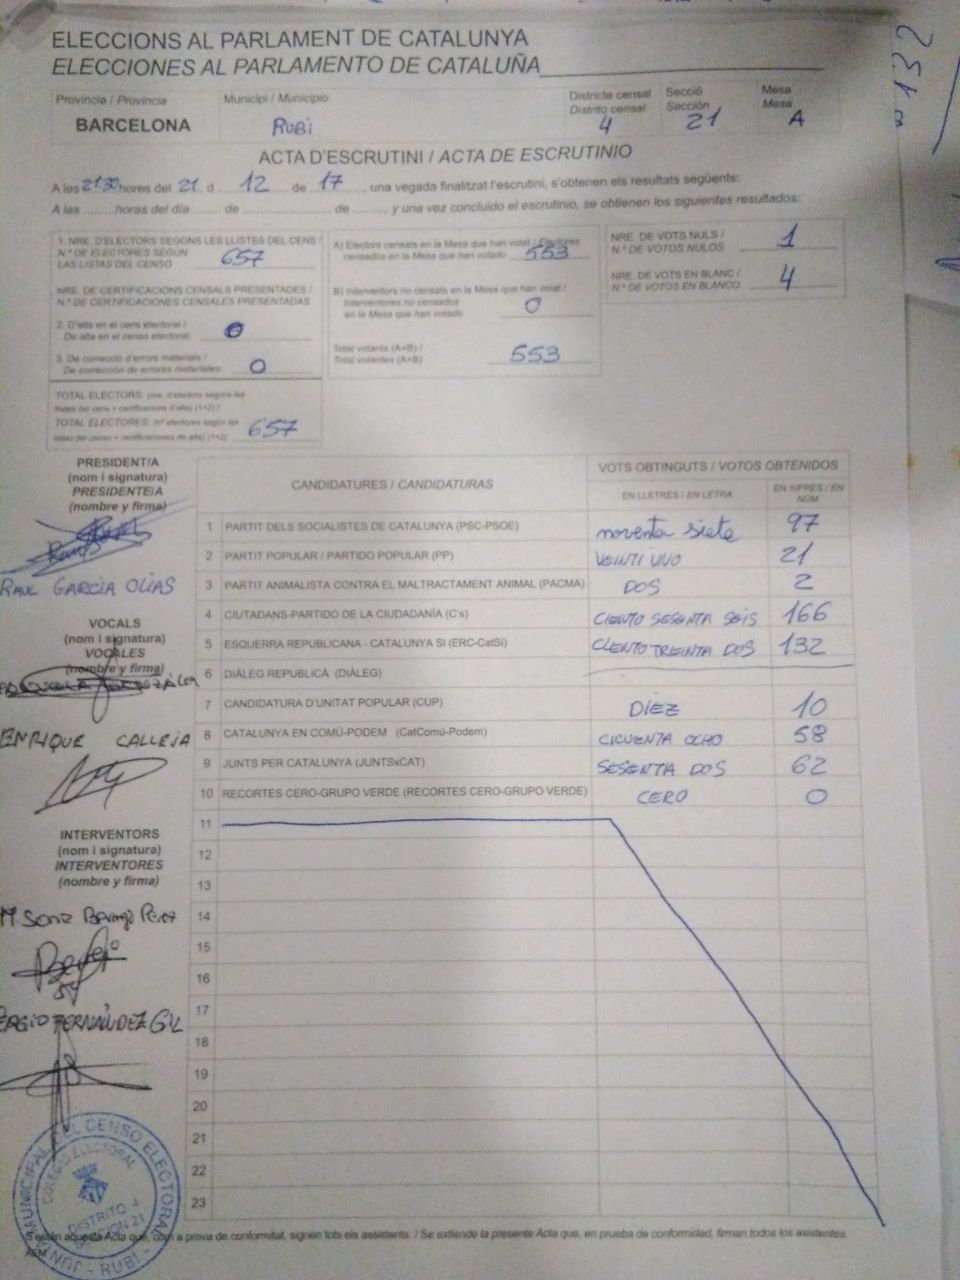 ELECCIONS AL PARLAMENT DE CATALUNYA
ELECCIONES AL PARLAMENTO DE CATALUÑA
132
Província / Provincia
BARCELONA
Municipi / Municipio
RUBÍ
Districte censal
Distrito censal
4
Secció
Sección
21
Mesa
Mesa
A
ACTA D'ESCRUTINI / ACTA DE ESCRUTINIO
A les 21:30 hores del 21 d 12 de 17, una vegada finalitzat l'escrutini, s'obtenen els resultats següents:
A las ........ horas del día ........ de ........................ de ........, y una vez concluido el escrutinio, se obtienen los siguientes resultados:
1. NRE. D'ELECTORS SEGONS LES LLISTES DEL CENS /
N.º DE ELECTORES SEGÚN
LAS LISTAS DEL CENSO 657
NRE. DE CERTIFICACIONS CENSALS PRESENTADES /
N.º DE CERTIFICACIONES CENSALES PRESENTADAS
2. D'alta en el cens electoral /
De alta en el censo electoral: 0
3. De correcció d'errors materials /
De corrección de errores materiales: 0
TOTAL ELECTORS: (nre. d'electors segons les
llistes del cens + certificacions d'alta) (1+2) /
TOTAL ELECTORES: (nº electores según las
listas del censo + certificaciones de alta) (1+2) 657
A) Electors censats en la Mesa que han votat / Electores
censados en la Mesa que han votado 553
B) Interventors no censats en la Mesa que han votat /
Interventores no censados
en la Mesa que han votado 0
Total votants (A+B) /
Total votantes (A+B) 553
NRE. DE VOTS NULS /
N.º DE VOTOS NULOS 1
NRE. DE VOTS EN BLANC /
N.º DE VOTOS EN BLANCO 4
PRESIDENT/A
(nom i signatura)
PRESIDENTE/A
(nombre y firma)
RAUL GARCIA OLIAS
VOCALS
(nom i signatura)
VOCALES
(nombre y firma)
ENRIQUE CALLEJA
INTERVENTORS
(nom i signatura)
INTERVENTORES
(nombre y firma)
SERGIO FERNÁNDEZ GIL
CANDIDATURES / CANDIDATURAS
VOTS OBTINGUTS / VOTOS OBTENIDOS
EN LLETRES / EN LETRA
EN XIFRES / EN NÚM.
1 PARTIT DELS SOCIALISTES DE CATALUNYA (PSC-PSOE) noventa siete 97
2 PARTIT POPULAR / PARTIDO POPULAR (PP) VEINTI UNO 21
3 PARTIT ANIMALISTA CONTRA EL MALTRACTAMENT ANIMAL (PACMA) DOS 2
4 CIUTADANS-PARTIDO DE LA CIUDADANÍA (C's) CIENTO SESENTA SEIS 166
5 ESQUERRA REPUBLICANA - CATALUNYA SÍ (ERC-CatSí) CIENTO TREINTA DOS 132
6 DIÀLEG REPUBLICÀ (DIÀLEG)
7 CANDIDATURA D'UNITAT POPULAR (CUP) DIEZ 10
8 CATALUNYA EN COMÚ-PODEM (CatComú-Podem) CICUENTA OCHO 58
9 JUNTS PER CATALUNYA (JUNTSxCAT) SESENTA DOS 62
10 RECORTES CERO-GRUPO VERDE (RECORTES CERO-GRUPO VERDE) CERO 0
11
12
13
14
15
16
17
18
19
20
21
22
23
JUNTA MUNICIPAL DEL CENSO ELECTORAL - RUBÍ
COLEGIO ELECTORAL
DISTRITO 4
SECCION 21
S'estén aquesta Acta que, com a prova de conformitat, signen tots els assistents. / Se extiende la presente Acta que, en prueba de conformidad, firman todos los asistentes.